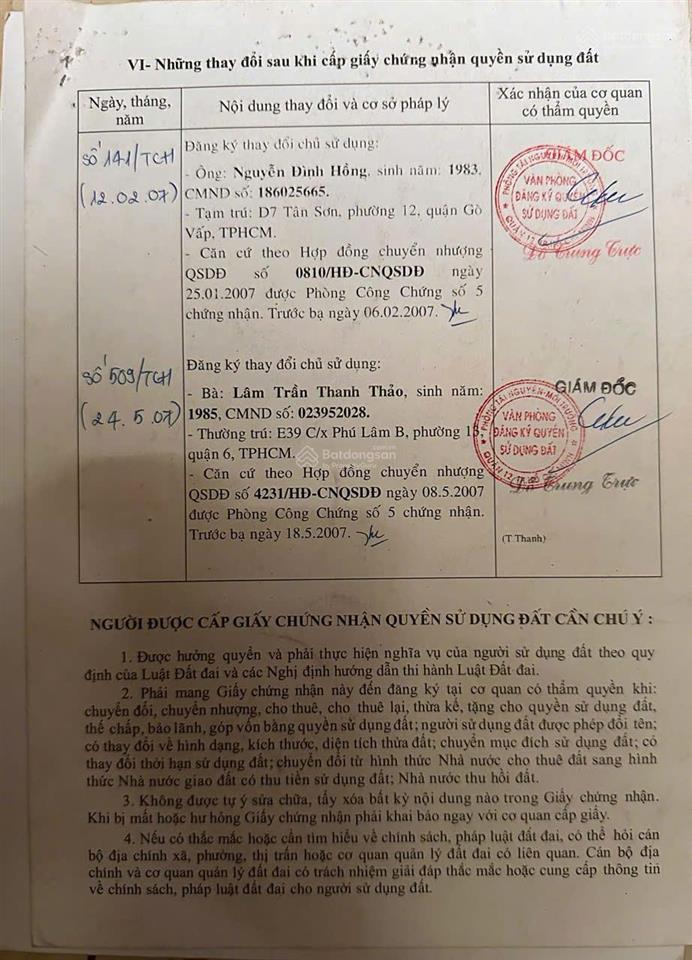 VI- Những thay đổi sau khi cấp giấy chứng nhận quyền sử dụng đất
Ngày, tháng,
năm
Nội dung thay đổi và cơ sở pháp lý
Xác nhận của cơ quan
có thẩm quyền
SỐ 141/TCH
(12.02.07)
Đăng ký thay đổi chủ sử dụng:
- Ông: Nguyễn Đình Hồng, sinh năm: 1983,
CMND số: 186025665.
- Tạm trú: D7 Tân Sơn, phường 12, quận Gò
Vấp, TPHCM.
- Căn cứ theo Hợp đồng chuyển nhượng
QSDĐ số 0810/HĐ-CNQSDĐ ngày
25.01.2007 được Phòng Công Chứng số 5
chứng nhận. Trước bạ ngày 06.02.2007.
GIÁM ĐỐC
PHÒNG TÀI NGUYÊN-MÔI TRƯỜNG
VĂN PHÒNG
ĐĂNG KÝ QUYỀN
SỬ DỤNG ĐẤT
QUẬN 12
Đỗ Trung Trực
SỐ 509/TCH
(24.5.07)
Đăng ký thay đổi chủ sử dụng:
- Bà: Lâm Trần Thanh Thảo, sinh năm:
1985, CMND số: 023952028.
- Thường trú: E39 C/x Phú Lâm B, phường 13
quận 6, TPHCM.
- Căn cứ theo Hợp đồng chuyển nhượng
QSDĐ số 4231/HĐ-CNQSDĐ ngày 08.5.2007
được Phòng Công Chứng số 5 chứng nhận.
Trước bạ ngày 18.5.2007.
GIÁM ĐỐC
PHÒNG TÀI NGUYÊN-MÔI TRƯỜNG
VĂN PHÒNG
ĐĂNG KÝ QUYỀN
SỬ DỤNG ĐẤT
QUẬN 12
Đỗ Trung Trực
(T.Thanh)
Batdongsan
NGƯỜI ĐƯỢC CẤP GIẤY CHỨNG NHẬN QUYỀN SỬ DỤNG ĐẤT CẦN CHÚ Ý :
1. Được hưởng quyền và phải thực hiện nghĩa vụ của người sử dụng đất theo quy
định của Luật Đất đai và các Nghị định hướng dẫn thi hành Luật Đất đai.
2. Phải mang Giấy chứng nhận này đến đăng ký tại cơ quan có thẩm quyền khi:
chuyển đổi, chuyển nhượng, cho thuê, cho thuê lại, thừa kế, tặng cho quyền sử dụng đất,
thế chấp, bảo lãnh, góp vốn bằng quyền sử dụng đất; người sử dụng đất được phép đổi tên;
có thay đổi về hình dạng, kích thước, diện tích thửa đất; chuyển mục đích sử dụng đất; có
thay đổi thời hạn sử dụng đất; chuyển đổi từ hình thức Nhà nước cho thuê đất sang hình
thức Nhà nước giao đất có thu tiền sử dụng đất; Nhà nước thu hồi đất.
3. Không được tự ý sửa chữa, tẩy xóa bất kỳ nội dung nào trong Giấy chứng nhận.
Khi bị mất hoặc hư hỏng Giấy chứng nhận phải khai báo ngay với cơ quan cấp giấy.
4. Nếu có thắc mắc hoặc cần tìm hiểu về chính sách, pháp luật đất đai, có thể hỏi cán
bộ địa chính xã, phường, thị trấn hoặc cơ quan quản lý đất đai có liên quan. Cán bộ địa
chính và cơ quan quản lý đất đai có trách nhiệm giải đáp thắc mắc hoặc cung cấp thông tin
về chính sách, pháp luật đất đai cho người sử dụng đất.